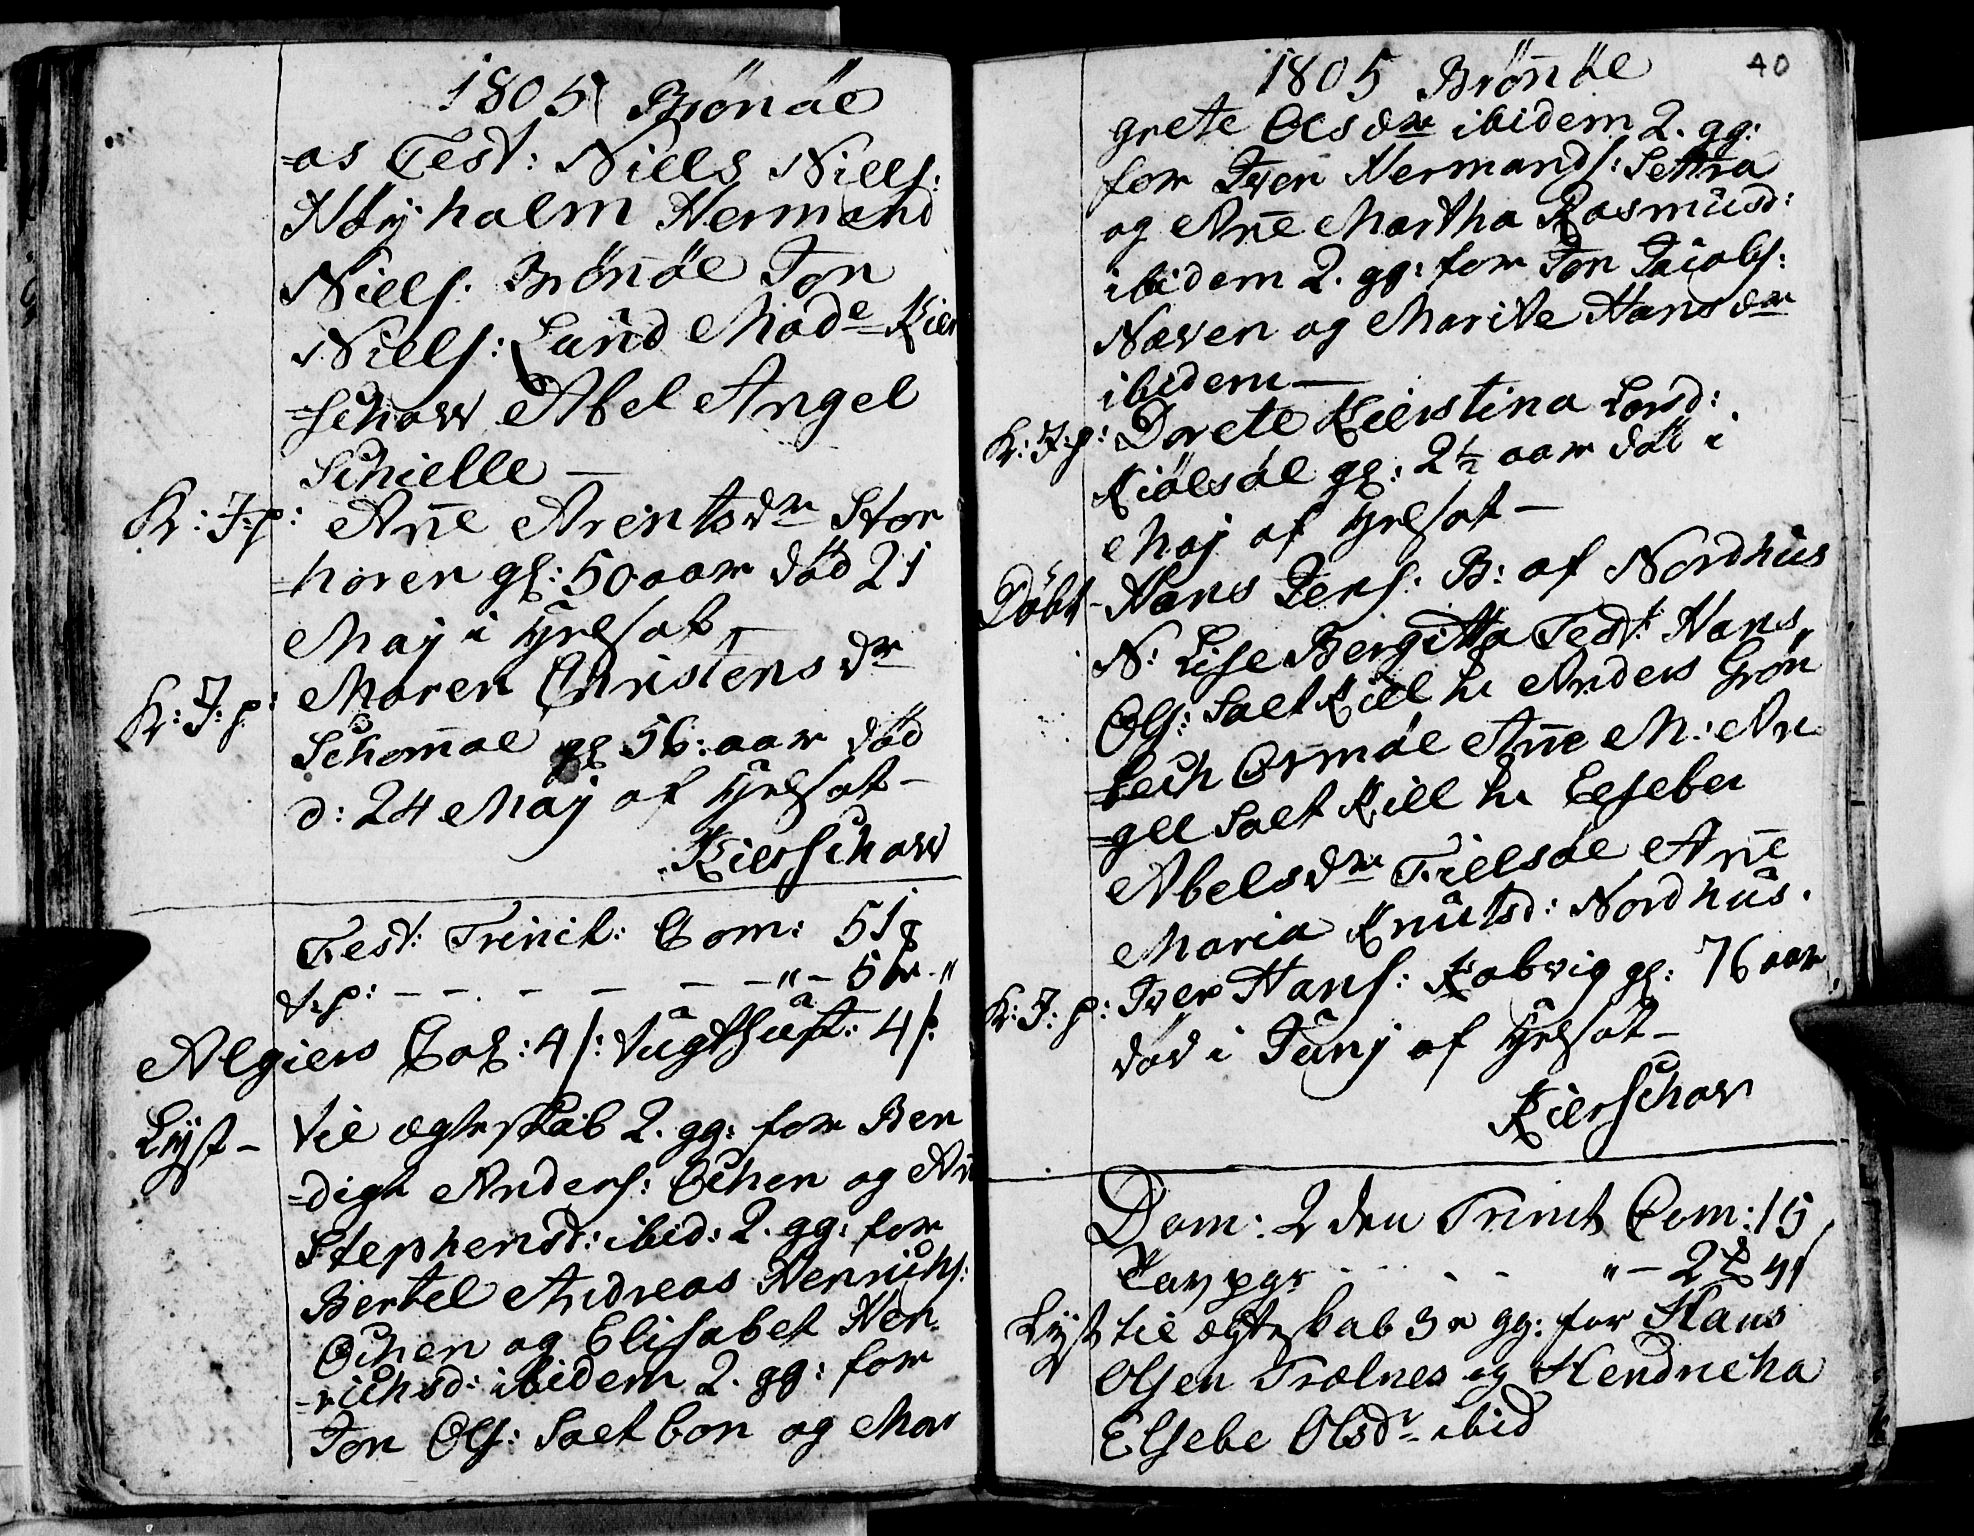 1805 Brönöe
=as Test: Niells Niells:
Höyholm Hermand
Niells: Brönöe Jon
Niells: Lund Mad:e Kier
=schow Abel Angel
Schielle —
Kr: J: p: Añe Arentsdr Stor
=horen gl: 50 aar död 21
Maj i
Kr: J: p: Maren Christensdr
Schomoe gl 56: aar död
d: 24 Maj af
Kierschow
Fest: Trinit: Com: 51
t.p: — — — — — — " — 5
Algiers Col: 4 s: tugthust: 4 s
Lyst — til ægteskab 2. gg: for Ben
=digt Anders: Ochen og An
Stephensd: ibid: 2. gg: for
Bertel Andreas Henrichs:
Ochen og Elisabet Hen
=richsd: ibidem 2. gg: for
Jon Ols: Saetbon og Mar
1805 Brönöe 40
grete Olsdr ibidem 2. gg:
for Iver Hermands: Settra
og Añe Martha Rasmusd:
ibidem 2. gg: for Jon Jacobs:
Næven og Marite Hansdr
ibidem —
Kr: J: p: Dorete Kierstina Larsd:
Kiölsöe gl: 2½ aar död i
Maj af
Döbt — Hans Jens: B: af Nordhus
N: Lise Bergitta Test: Hans
Ols: Saltkill hr Anders Grön
=bech Ormöe Añe M: An
=gell Saltkill hr Elseber
Abelsdr Tielsöe Añe
Maria Knutsd: Nordhus.
Kr: J: p: Iver Hans: Kabvig gl: 76 aar
död i Junj af
Kierschow
Dom: 2den Trinit Com: 15
" — 2 4 s
Lyst til ægteskab 3e gg: for Hans
Olsen Trælnes og Hendricha
Elsebe Olsdr ibid